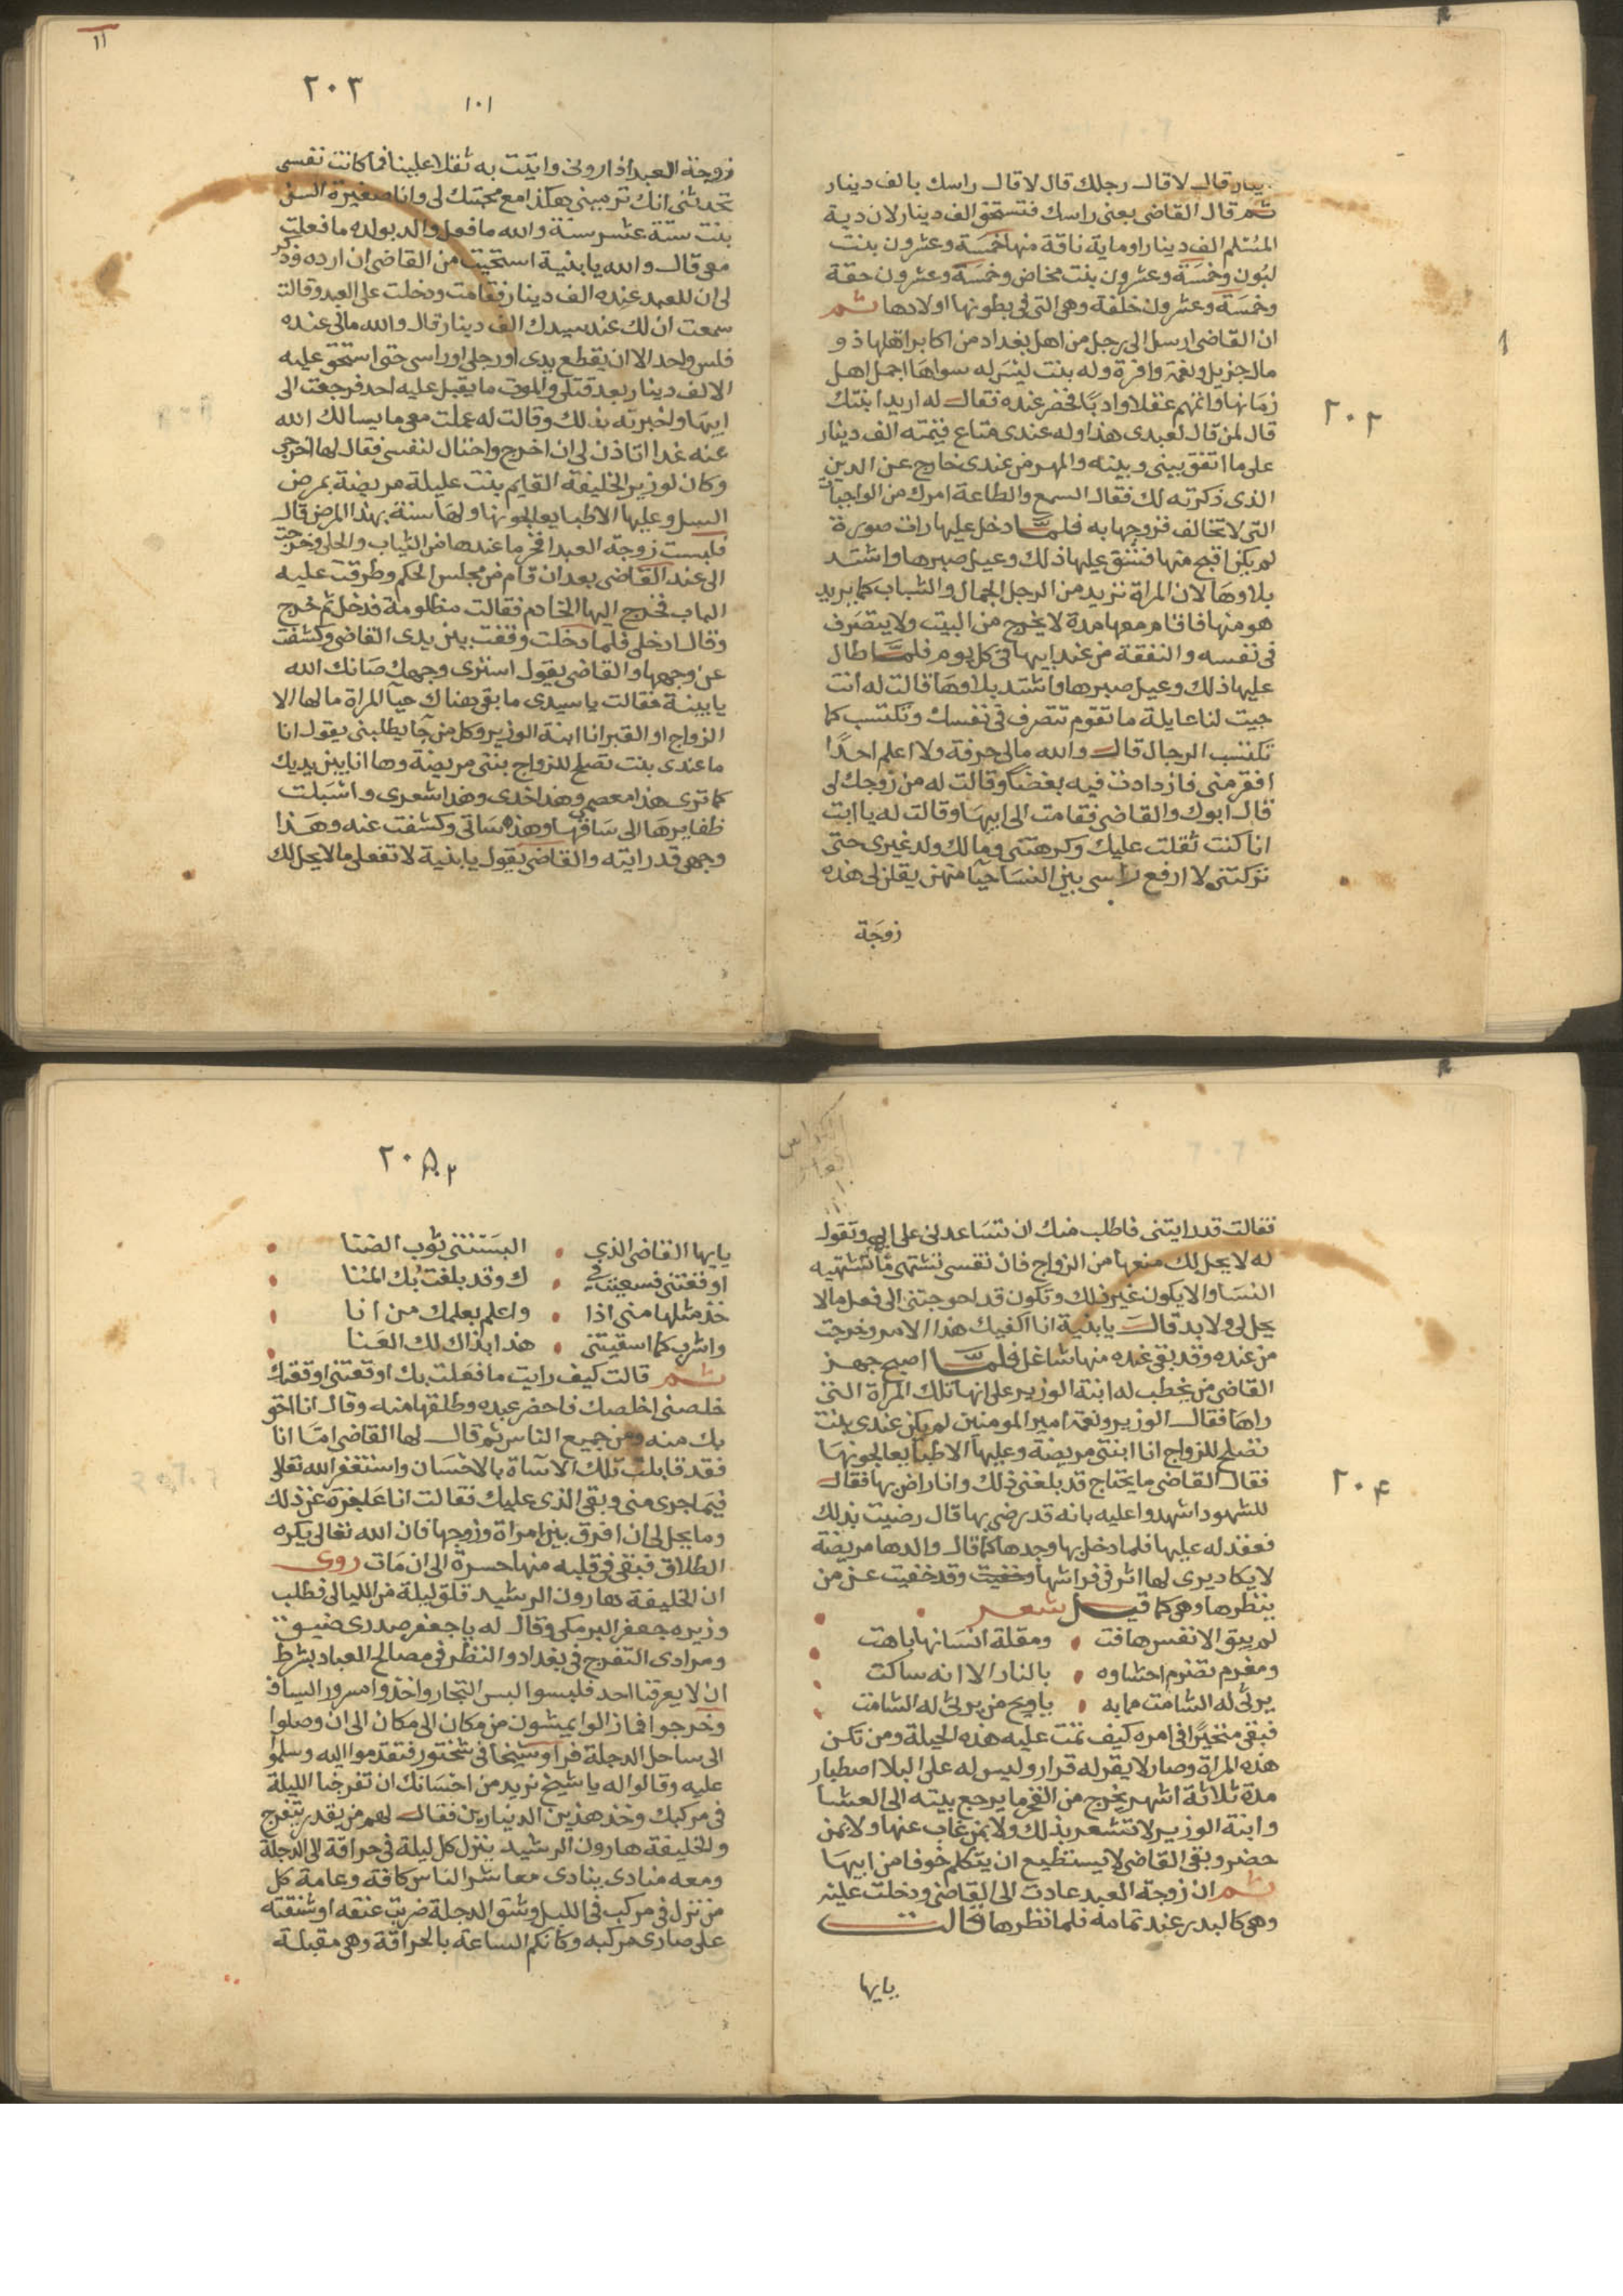 ٢٠٢
دينار قال لا قال رجلك قال لا قال راسك بالف دينار
ثم قال القاضى يعنى راسك فتستحق الف دينار لان دية
المسلم الف دينار او ماية ناقة منها خمسة وعشرون بنت
لبون وخمسة وعشرون بنت مخاض وخمسة وعشرون حقة
وخمسة وعشرون خلفة وهى التى فى بطونها اولادها ثم
ان القاضى ارسل الى رجل من اهل بغداد من اكابر اهلها ذو
مال جزيل ونعمة وافرة وله بنت ليس له سواها اجمل اهل
زمانها واتمهم عقلا وادبا فحضر عنده فقال له اريد ابنتك
قال لمن قال لعبدى هذا وله عندى متاع قيمته الف دينار
على ما اتفق بينى وبينه والمهر من عندى خارج عن الدين
الذى ذكرته لك فقال السمع والطاعة امرك من الواجبات
التى لا تخالف فزوجها به فلما دخل عليها رات صورة
لم يكن اقبح منها فشق عليها ذلك وعيل صبرها واشتد
بلاوها لان المراة تريد من الرجل الجمال والشباب كما يريد
هو منها فاقام معها مدة لا يخرج من البيت ولا يتصرف
فى نفسه والنفقة من عند ابيها فى كل يوم فلما طال
عليها ذلك وعيل صبرها واشتد بلاوها قالت له انت
جيت لنا عايلة ما تقوم تتصرف فى نفسك وتكتسب كما
تكتسب الرجال قال والله مالى حرفة ولا اعلم احدا
افقر منى فازدادت فيه بغضا وقالت له من زوجك لى
قال ابوك والقاضى فقامت الى ابيها وقالت له يا ابت
انا كنت ثقلت عليك وكرهتنى ومالك ولد غيرى حتى
تركتنى لا ارفع راسى بين النسا حيا منهن يقلن لى هذه
زوجة
١١
٢٠٣
١٠١
زوجة العبد اذا رونى واتيت به ثقلا علينا فما كانت نفسى
تحدثنى انك ترمينى هكذا مع محبتك لى وانا صغيرة السن
بنت ستة عشر سنة والله ما فعل والد بولده ما فعلت
معى قال والله يا بنية استحيت من القاضى ان ارده وذكر
لى ان للعبد عنده الف دينار فقامت ودخلت على العبد وقالت
سمعت ان لك عند سيدك الف دينار قال والله مالى عنده
فلس واحد الا ان يقطع يدى او رجلى او راسى حتى استحق عليه
الالف دينار بعد قتلى والموت ما يقبل عليه احد فرجعت الى
ابيها واخبرته بذلك وقالت له عملت معى ما يسالك الله
عنه غدا اتاذن لى ان اخرج واحتال لنفسى فقال لها اخرجى
وكان لوزير الخليفة القايم بنت عليلة مريضة بمرض
السل وعليها الاطبا يعالجونها ولها سنة بهذا المرض قال
فلبست زوجة العبد افخر ما عندها من الثياب والحلى وخرجت
الى عند القاضى بعد ان قام من مجلس الحكم وطرقت عليه
الباب فخرج اليها الخادم فقالت مظلومة فدخل ثم خرج
وقال ادخلى فلما دخلت وقفت بين يدى القاضى وكشفت
عن وجهها والقاضى يقول استرى وجهك صانك الله
يا بينة فقالت يا سيدى ما بقى هناك حيآ المراة مالها الا
الزواج او القبر انا ابنة الوزير وكل من جآ يطلبنى يقول انا
ما عندى بنت تصلح للزواج بنتى مريضة وها انا بين يديك
كما ترى هذا معصمى وهذا خدى وهذا شعرى واشبلت
ظفايرها الى ساقها وهذه ساقى وكشفت عنه وهذا
وجهى قد رايته والقاضى يقول يا بنية لا تفعلى ما لا يحل لك
٢٠٤
فقالت قد رايتنى فاطلب منك ان تساعدنى على ابى وتقول
له لا يحل لك منعها من الزواج فان نفسى تشتهى ما تشتهيه
النسا والا يكون غير ذلك وتكون قد احوجتنى الى فعل ما لا
يحل لى ولا بد قال يا بنية انا اكفيك هذا الامر وخرجت
من عنده وقد بقى عنده منها شاغل فلما اصبح جهز
القاضى من يخطب له ابنة الوزير على انها تلك المراة التى
راها فقال الوزير ونعمة امير المومنين لم يكن عندى بنت
تصلح للزواج انا ابنتى مريضة وعليها الاطبا يعالجونها
فقال القاضى ما يحتاج قد بلغنى ذلك وانا راض بها فقال
للشهود اشهدوا عليه بانه قد رضى بها قال رضيت بذلك
فعقد له عليها فلما دخل بها وجدها كما قال والدها مريضة
لا يكاد يرى لها اثر فى فراشها وخفيت وقد خفيت عن من
ينظرها وهى كما قيل شعر
لم يبق الا نفس هافت ومقلة انسانها باهت
ومغرم تضرم احشاوه بالنار الا انه ساكت
يرثى له الشامت مما به يا ويح من يرثى له الشامت
فبقى متحيرا فى امره كيف تمت عليه هذه الحيلة ومن تكن
هذه المراة وصار لا يقر له قرار وليس له على البلا اصطبار
مدة ثلاثة اشهر يخرج من الفجر ما يرجع بيته الى العشا
وابنة الوزير لا تشعر بذلك ولا بمن غاب عنها ولا بمن
حضر وبقى القاضى لا يستطيع ان يتكلم خوفا من ابيها
ثم ان زوجة العبد عادت الى القاضى ودخلت عليه
وهى كالبدر عند تمامه فلما نظرها قالت
يايها
٢٠٥
يايها القاضى الذي البستنى ثوب الضنا
اوقعتنى فسعيت فى ك وقد بلغت بك المنا
خذ مثلها منى اذا واعلم بعلمك من انا
واشرب كما اسقيتنى هذا بذاك لك العنا
ثم قالت كيف رايت ما فعلت بك اوقعتنى اوقعتك
خلصنى اخلصك فاحضر عبده وطلقها منه وقال انا احق
بك منه ومن جميع الناس ثم قال لها القاضى اما انا
فقد قابلت تلك الاساة بالاحسان واستغفر الله تعالى
فيما جرى منى وبقى الذى عليك فقالت انا عاجزة عن ذلك
وما يحل لى ان افرق بين امراة وزوجها فان الله تعالى يكره
الطلاق فبقى فى قلبه منها حسرة الى ان مات روى
ان الخليفة هارون الرشيد قلق ليلة من الليالى فطلب
وزيره جعفر البرمكى وقال له يا جعفر صدرى ضيق
ومرادى التفرج فى بغداد والنظر فى مصالح العباد بشرط
ان لا يعرفنا احد فلبسوا لبس التجار واخذوا مسرور السياف
وخرجوا فما زالوا يمشون من مكان الى مكان الى ان وصلوا
الى ساحل الدجلة فراوا شيخا فى شختور فتقدموا اليه وسلموا
عليه وقالوا له يا شيخ نريد من احسانك ان تفرجنا الليلة
فى مركبك وخذ هذين الدينارين فقال لهم من يقدر يتفرج
والخليفة هارون الرشيد ينزل كل ليلة فى حراقة الى الدجلة
ومعه منادى ينادى معاشر الناس كافة وعامة كل
من نزل فى مركب فى الليل وشق الدجلة ضربت عنقه او شنقته
على صارى مركبه وكانكم الساعة بالحراقة وهى مقبلة